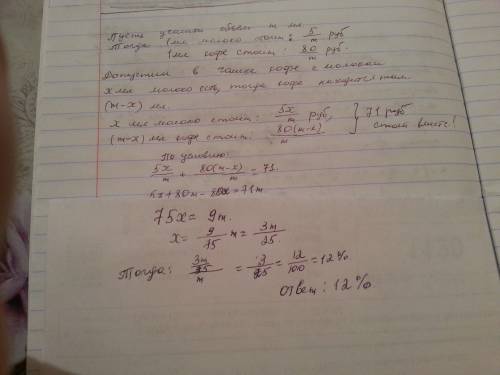 Пусть объем m мл.
Тогда 1 мл молоко стоит: 5/m руб
1 мл кофе стоит: 80/m руб.
Допустим в чашке кофе с молоком
x мл молоко есть, тогда кофе находится там
(m-x) мл.
x мл молоко стоит: 5x/m руб, } 71 руб
(m-x) мл кофе стоит: 80(m-x)/m } стоит вместе!
По условию:
5x/m + 80(m-x)/m = 71.
5x+80m-80x=71m
75x = 9m.
x = 9/75 m = 3m/25.
Тогда: 3m/25/m = 3/25 = 12/100 = 12%
ответ: 12%.